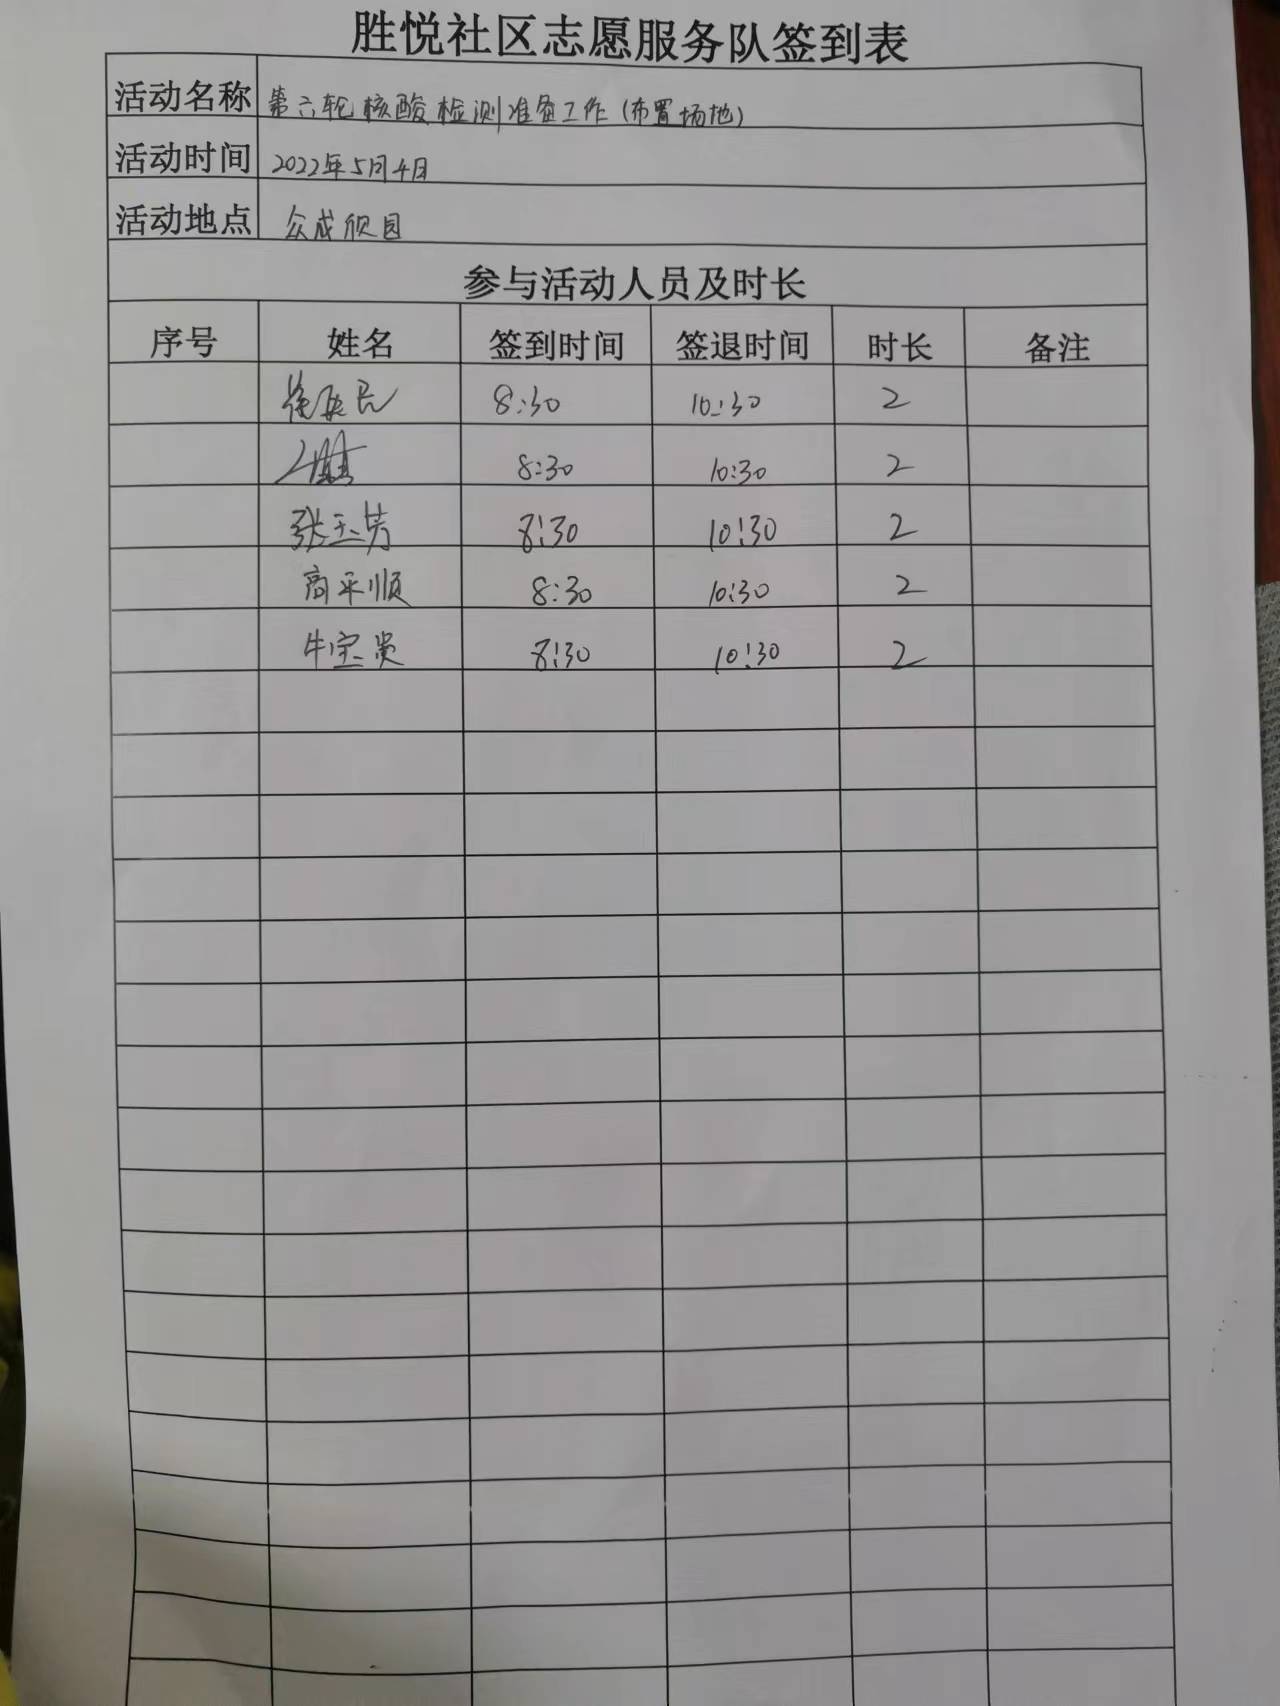 胜悦社区志愿服务队签到表
活动名称 第六轮核酸检测准备工作(布置场地)
活动时间 2022年5月4日
活动地点 众成欣园
参与活动人员及时长
序号 姓名 签到时间 签退时间 时长 备注
8:30 10:30 2
8:30 10:30 2
张玉芳 8:30 10:30 2
商平顺 8:30 10:30 2
牛宝贵 8:30 10:30 2